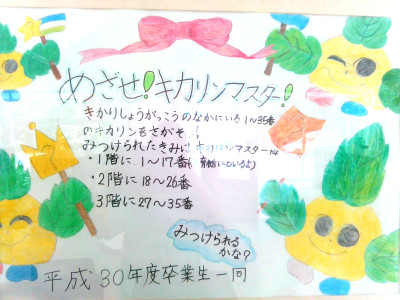 めざせ!キカリンマスター!
きかりしょうがっこうのなかにいる1~35番
のキカリンをさがそ!
みつけられたきみはキカリンマスターだ
・1階に1~17番(育館にもいるよ)
・2階に18~26番
・3階に27~35番
みつけられる
かな?
平成30年度卒業生一同